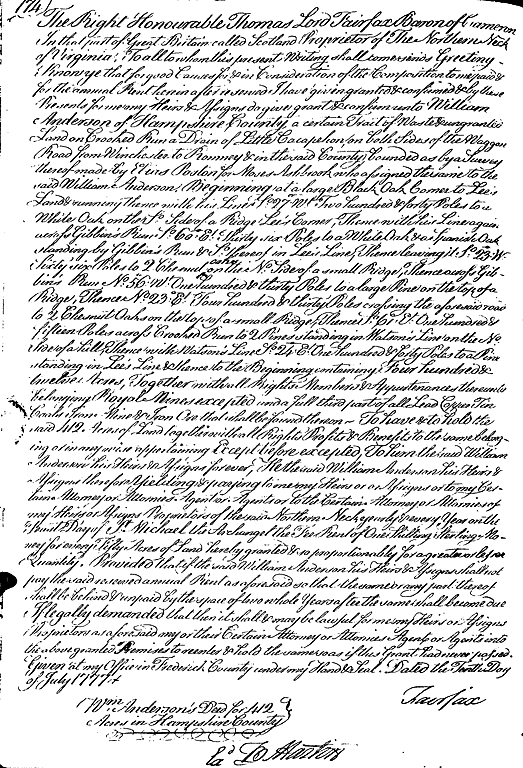 The Right Honourable Thomas Lord Fairfax Baron of Cameron
In that part of Great Britain called Scotland Proprietor of The Northern Neck
of Virginia; To all to whom this present Writing shall come sends Greeting
Know ye that for good Causes for & in Consideration of the Composition to me paid &
for the annual Rent herein after reserved I have given granted & confirmed & by these
Presents for me my Heirs & Assigns do give grant & confirm unto William
Anderson of Hampshire County a certain Tract of Waste & ungranted
Land on Crooked Run a Drain of Little Cacapehon on both Sides of the Waggon
Road from Winchester to Romney & in the said County, bounded as by a Survey
thereof made by Elias Poston for Moses Ashbrook who assigned the same to the
said William Anderson; Beginning at a large Black Oak Corner to Lee's
Land & running thence with his Line S. 27 Wt. Two hundred & forty Poles to a
White Oak on the Side of a Ridge Lee's Corner, Thence with his Line again
across Gibbin's Run S. 60 Et. Thirty six Poles to a White Oak & a Spanish Oak
standing by Gibbin's Run & in Lee's Line, Thence leaving it S. 43 W.
Sixty six Poles to 2 Chesnut Oaks on the No. Side of a small Ridge, Thence across Gib-
bin's Run No. 56 W. One hundred & thirty Poles to a large Pine on the top of a
Ridge, Thence No. 23 Et. Four hundred & thirty Poles crossing the aforesaid road
to 2 Chesnut Oaks on the top of a small Ridge, Thence S. 61 Et. One hundred &
fifteen Poles across Crooked Run to 2 Pines standing in Line on the No.
Side of a Hill, Thence with Line S. 24 Et. One hundred & forty Poles to a Pine
standing in Lee's Line & thence to the Beginning containing Four hundred &
twelve Acres, Together with all Rights Members & Appurtenances thereunto
belonging Royal Mines excepted and a full third part of all Lead Copper Tin
Coals Iron Mine & Iron Ore that shall be found thereon. To have & to hold the
said 412 Acres of Land together with all Rights Profits & Benefits to the same belong-
ing or in any wise appertaining Except before excepted, To him the said William
Anderson his Heirs & Assigns forever, He the said William Anderson his Heirs &
Assigns therefor Yielding & paying to me my Heirs or Assigns or to my Cer-
tain Attorney or Attornies Agent or Agents or to the Certain Attorney or Attornies of
my Heirs or Assigns Proprietors of the said Northern Neck yearly & every Year on the
Feast Day of St. Michael the Archangel the Fee Rent of One Shilling Sterling Mo-
ney for every Fifty Acres of Land hereby granted & so proportionably for a greater or lesser
Quantity. Provided that if the said William Anderson his Heirs & Assigns shall not
pay the said reserved annual Rent as aforesaid so that the same or any part thereof
shall be behind & unpaid by the space of two whole Years after the same shall become due
If legally demanded that then it shall & may be lawful for me my Heirs or Assigns
Proprietors as aforesaid my or their Certain Attorney or Attornies Agent or Agents into
the above granted Premises to reenter & hold the same so as if this Grant had never passed.
Given at my Office in Frederick County under my Hand & Seal. Dated the Tenth Day
of July 1777
Fairfax
Wm. Anderson's Deed for 412
Acres in Hampshire County